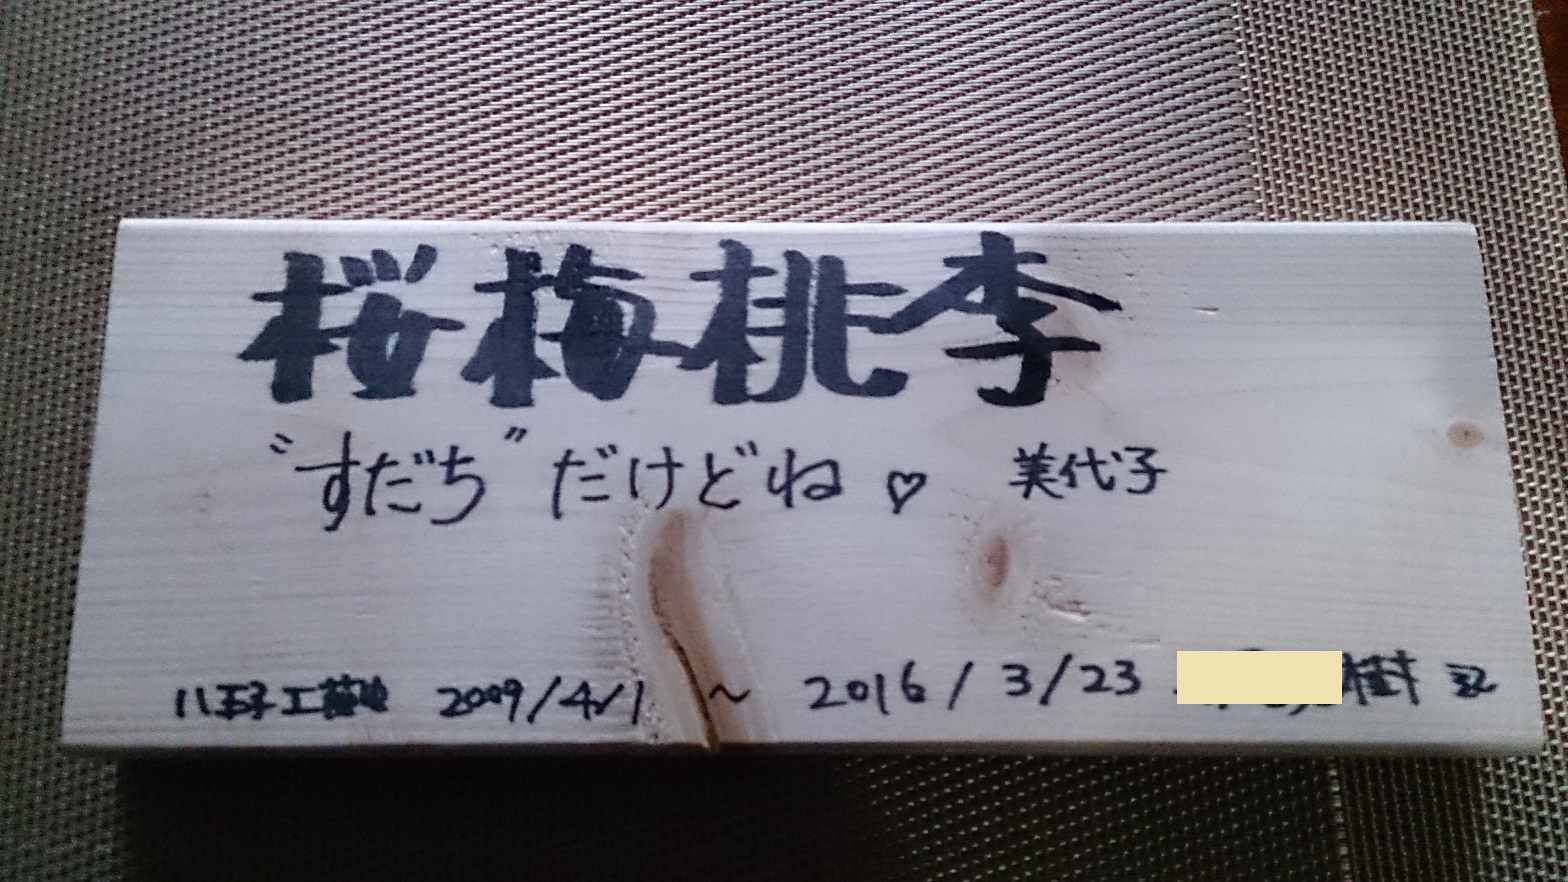 桜梅桃李
〝すだち〟だけどね♡ 美代子
八王子工 2009/4/1 ~ 2016/3/23 樹 記